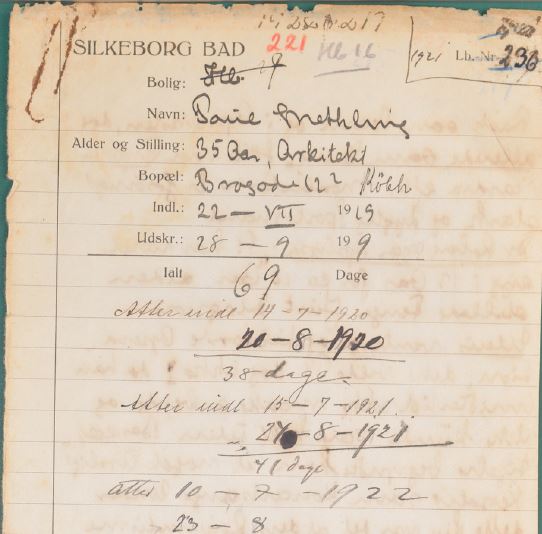 SILKEBORG BAD
221
Hb 16
1921 Lb. Nr. 236
Bolig: Hb.
Navn: Poul Methling
Alder og Stilling: 35 Aar, Arkitekt
Bopæl: Brogade 12² Kbhh
Indl.: 22 — VII 1919
Udskr.: 28 — 9 19 9
Ialt 69 Dage
Atter indl 14 - 7 - 1920
20 - 8 - 1920
38 dage -
Atter indl 15 - 7 - 1921.
24 - 8 - 1921
41 dage
atter 10 - 7 - 1922
23 - 8